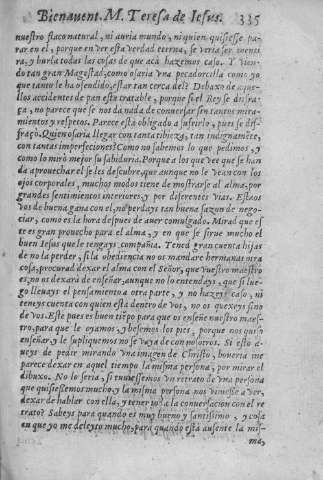 Bienauent. M. Teresa de Iesus. 335
nuestro flaco natural, ni auria mundo, ni quien quisiesse pa-
rar en el, porque en ver esta verdad eterna, se veria ser menti
ra, y burla todas las cosas de que acà hazemos caso. Y vien-
do tan gran Magestad, como osaria vna pecadorcilla como yo
que tanto le ha ofendido, estar tan cerca del? Debaxo de aque-
llos accidentes de pan està tratable, porque si el Rey se disfra-
ça, no parece que se nos dà nada de conuersar sin tantos mira-
mientos y respetos. Parece està obligado a sufrirlo, pues se dis-
fraçò. Quien osaria llegar con tanta tibieza, tan indignamẽte,
con tantas imperfecciones? Como no sabemos lo que pedimos, y
como lo mirò mejor su sabiduria. Porque a los que vee que se han
de aprouechar el se les descubre, que aunque no le vean con los
ojos corporales, muchos modos tiene de mostrarse al alma, por
grandes sentimientos interiores, y por diferentes vias. Estaos
vos de buena gana con el, no perdays tan buena sazon de nego-
ciar, como es la hora despues de auer comulgado. Mirad que es
te es gran prouecho para el alma, y en que se sirue mucho el
buen Iesus que le tengays compañia. Tened gran cuenta hijas
de no la perder, si la obediencia no os mandare hermanas otra
cosa, procurad dexar el alma con el Señor, que vuestro maestro
es, no os dexarà de enseñar, aunque no lo entendays, que si lue-
go lleuays el pensamiento a otra parte, y no hazeys caso, ni
teneys cuenta con quien està dentro de vos, no os quexeys sino
de vos. Este pues es buen tiẽpo para que os enseñe nuestro maes-
tro, para que le oyamos, y besemos los pies, porque nos quiso
enseñar, y le supliquemos no se vaya de con nosotros. Si esto a-
ueys de pedir mirando vna imagen de Christo, boueria me
parece dexar en aquel tiempo la misma persona, por mirar el
dibuxo. No lo seria, si tuuiessemos vn retrato de vna persona
que quisiessemos mucho, y la misma persona nos viniesse a ver,
dexar de hablar con ella, y tener toda la conuersacion con el re
trato? Sabeys para quando es muy bueno y santissimo, y cosa
en que yo me deleyto mucho, para quando està ausente la mis-
ma,